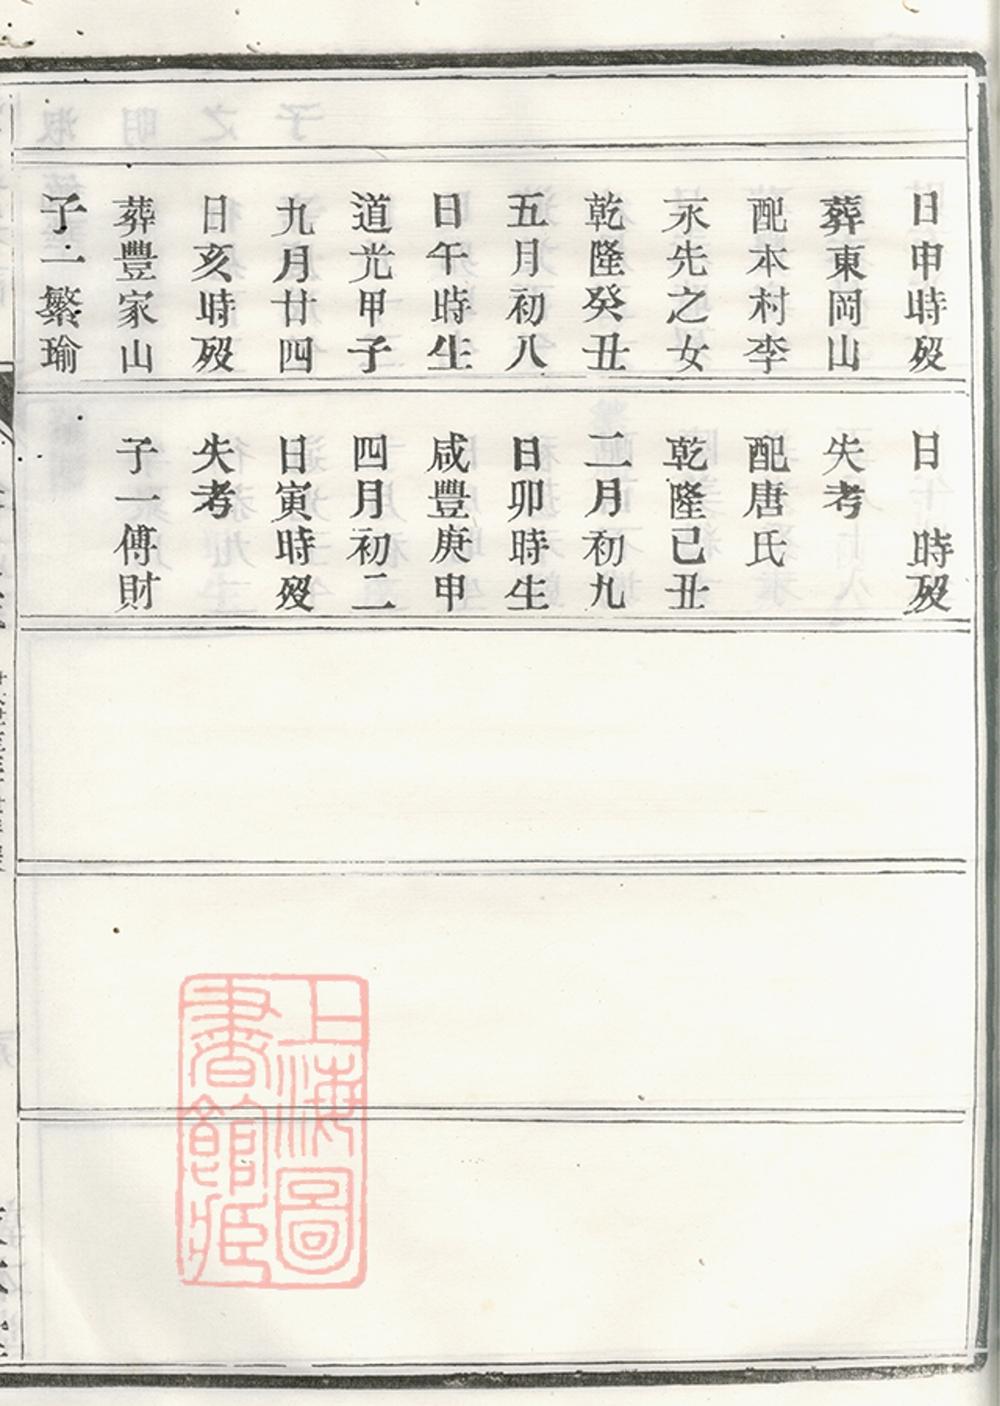 日申時歿
葬東岡山
配本村李
永先之女
乾隆癸丑
五月初八
日午時生
道光甲子
九月廿四
日亥時歿
葬豐家山
子一繁瑜
日　時歿
失考
配唐氏
乾隆己丑
二月初九
日卯時生
咸豐庚申
四月初二
日寅時歿
失考
子一傅財
上海圖
書館藏